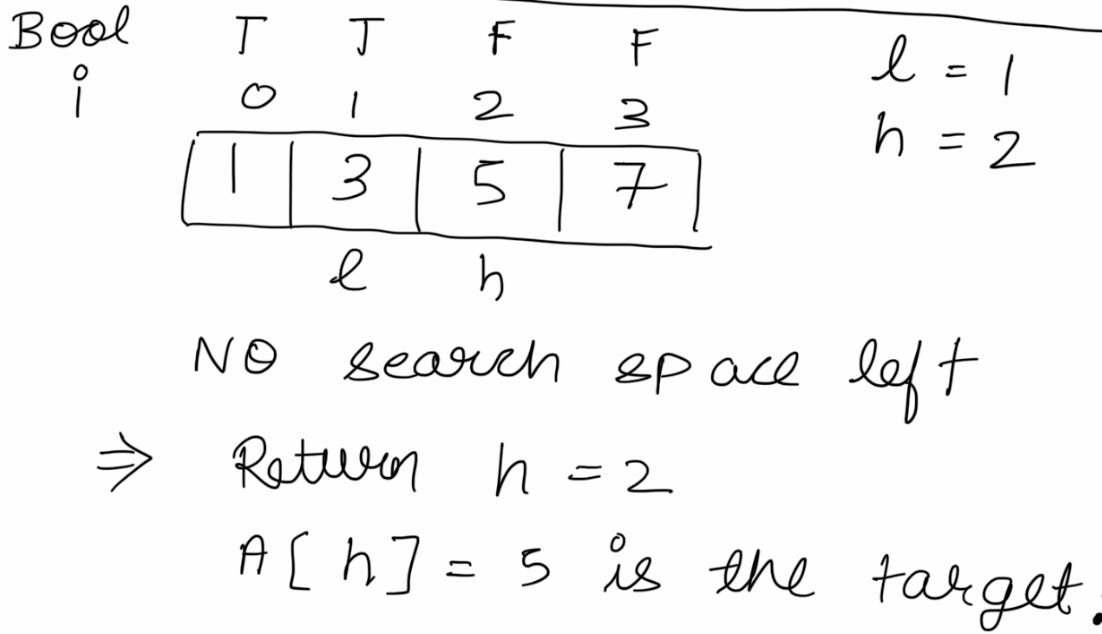 Bool T T F F
i 0 1 2 3
l = 1
h = 2
1 3 5 7
l h
NO search space left
⇒ Return h = 2
A[h] = 5 is the target.